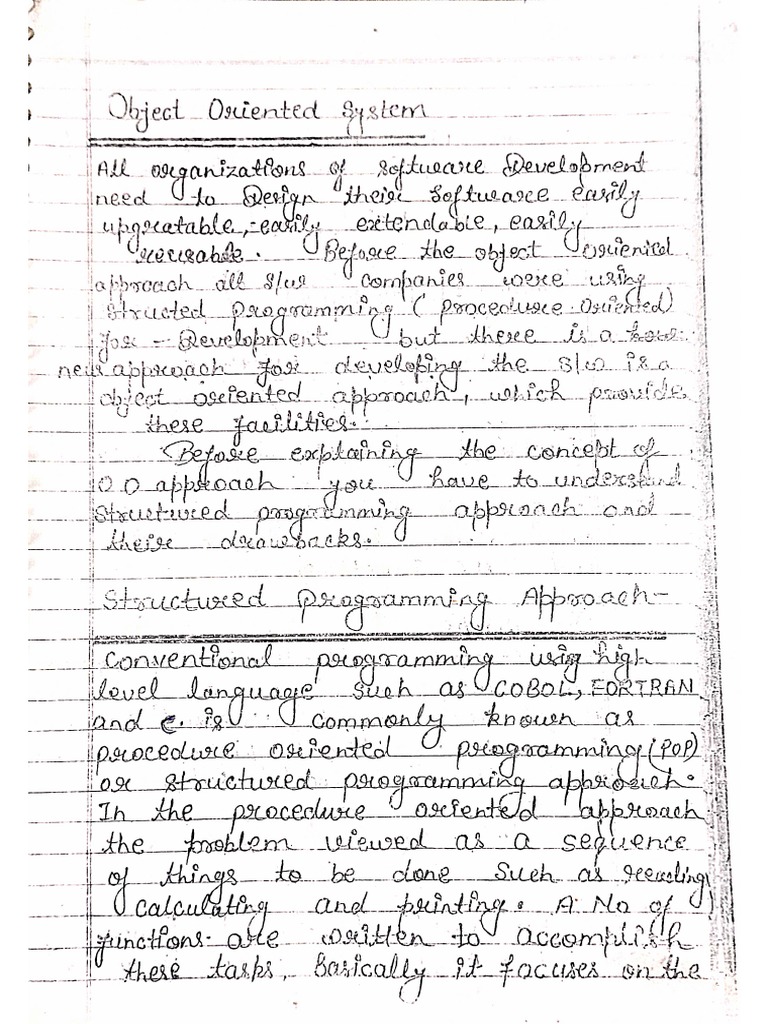 Object Oriented System
All organizations of software Development
need to Design their software easily
upgreatable, easily extendable, easily
reusable. Before the object oriented
approach all s/w companies were using
structed programming (procedure oriented)
for Development but there is a
new approach for developing the s/w is a
object oriented approach, which provide
these facilities.
Before explaining the concept of
O O approach you have to understand
structured programming approach and
their drawbacks.
Structured programming Approach-
Conventional programming using high
level language such as COBOL, FORTRAN
and c. is commonly known as
procedure oriented programming (POP)
or structured programming approach.
In the procedure oriented approach
the problem viewed as a sequence
of things to be done such as reading
calculating and printing. A No of
functions are written to accomplish
these tasks, Basically it focuses on the